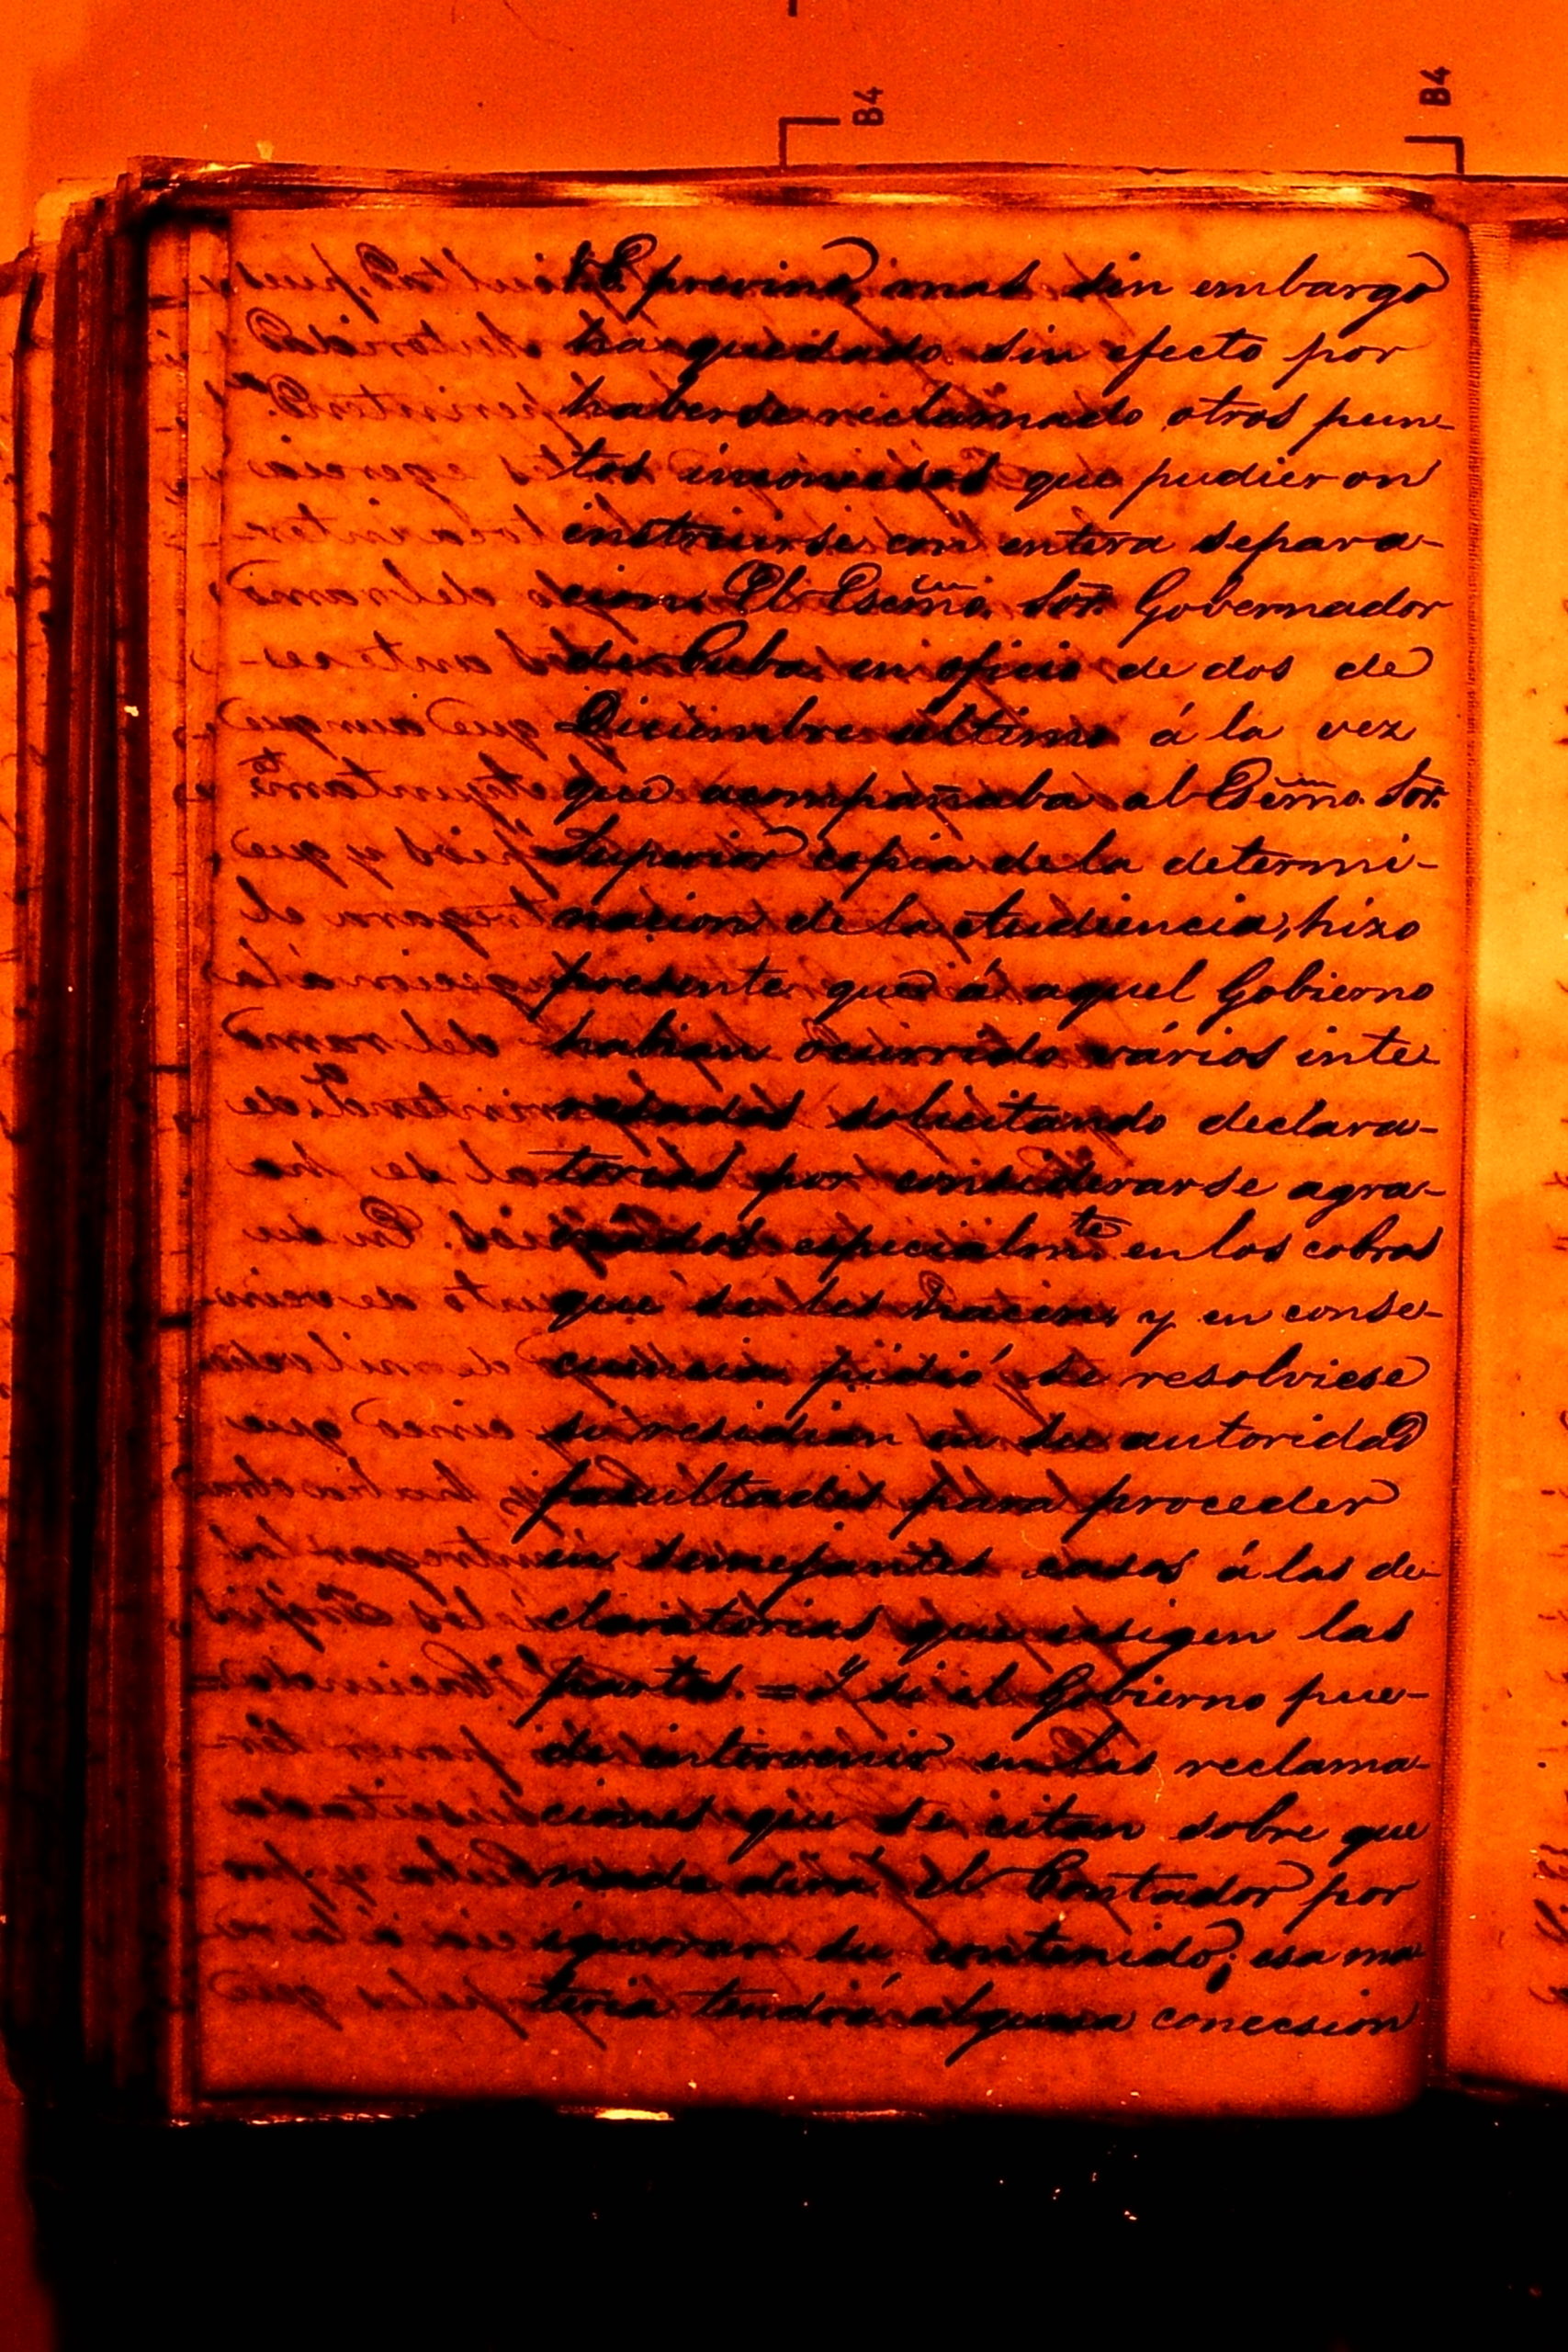 B4
B4
V.E. previno, mas sin embargo
ha quedado sin efecto por
haberse reclamado otros pun-
tos inconecsos que pudieron
instruirse con entera separa-
cion. El Escmo. Sor. Governador
de Cuba en oficio de dos de
Diciembre ultimo á la vez
que acompañaba al Escmo. Sor.
Superior copia de la determi-
nacion de la Audiencia, hizo
presente que á aquel Gobierno
habian ocurrido vários inte-
resados solicitando declara-
torias por considerarse agra-
viados especialmte. en los cobros
que se les hacen, y en conse-
cuencia pidió se resolviese
si residian en su autoridad
facultades para proceder
en semejantes casos á las de-
claratorias que ecsigen las
partes. = Y si el Gobierno pue-
de intervenir en las reclama-
ciones que se citan sobre que
nada dirá el Contador por
ignorar su contenido; esa ma-
teria tendrá alguna conecsion